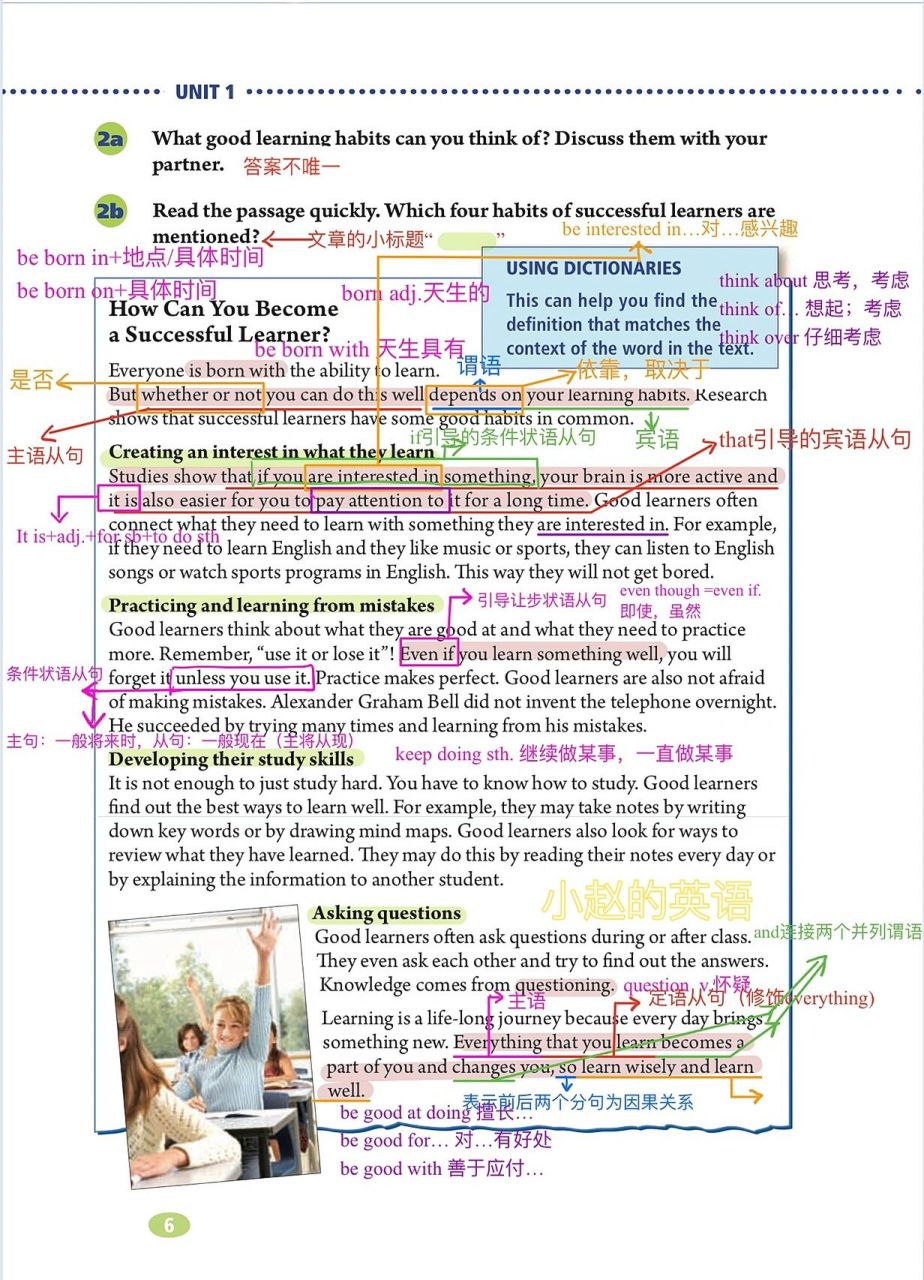 UNIT 1
2a What good learning habits can you think of? Discuss them with your
partner. 答案不唯一
2b Read the passage quickly. Which four habits of successful learners are
mentioned? 文章的小标题“ ”
be interested in…对…感兴趣
be born in+地点/具体时间
be born on+具体时间
born adj.天生的
be born with 天生具有
USING DICTIONARIES
This can help you find the
definition that matches the
context of the word in the text.
think about 思考，考虑
think of… 想起；考虑
think over 仔细考虑
How Can You Become
a Successful Learner?
Everyone is born with the ability to learn.
是否
谓语
依靠，取决于
But whether or not you can do this well depends on your learning habits. Research
shows that successful learners have some good habits in common.
主语从句
if引导的条件状语从句
宾语
that引导的宾语从句
Creating an interest in what they learn
Studies show that if you are interested in something, your brain is more active and
it is also easier for you to pay attention to it for a long time. Good learners often
connect what they need to learn with something they are interested in. For example,
It is+adj.+for sb+to do sth
if they need to learn English and they like music or sports, they can listen to English
songs or watch sports programs in English. This way they will not get bored.
Practicing and learning from mistakes
引导让步状语从句
even though =even if.
即使，虽然
Good learners think about what they are good at and what they need to practice
more. Remember, “use it or lose it”! Even if you learn something well, you will
条件状语从句
forget it unless you use it. Practice makes perfect. Good learners are also not afraid
of making mistakes. Alexander Graham Bell did not invent the telephone overnight.
He succeeded by trying many times and learning from his mistakes.
主句：一般将来时，从句：一般现在（主将从现）
Developing their study skills
keep doing sth. 继续做某事，一直做某事
It is not enough to just study hard. You have to know how to study. Good learners
find out the best ways to learn well. For example, they may take notes by writing
down key words or by drawing mind maps. Good learners also look for ways to
review what they have learned. They may do this by reading their notes every day or
by explaining the information to another student.
小赵的英语
Asking questions
Good learners often ask questions during or after class.
and连接两个并列谓语
They even ask each other and try to find out the answers.
Knowledge comes from questioning. question v.怀疑
主语
定语从句（修饰everything)
Learning is a life-long journey because every day brings
something new. Everything that you learn becomes a
part of you and changes you, so learn wisely and learn
well.
表示前后两个分句为因果关系
be good at doing 擅长…
be good for… 对…有好处
be good with 善于应付…
6